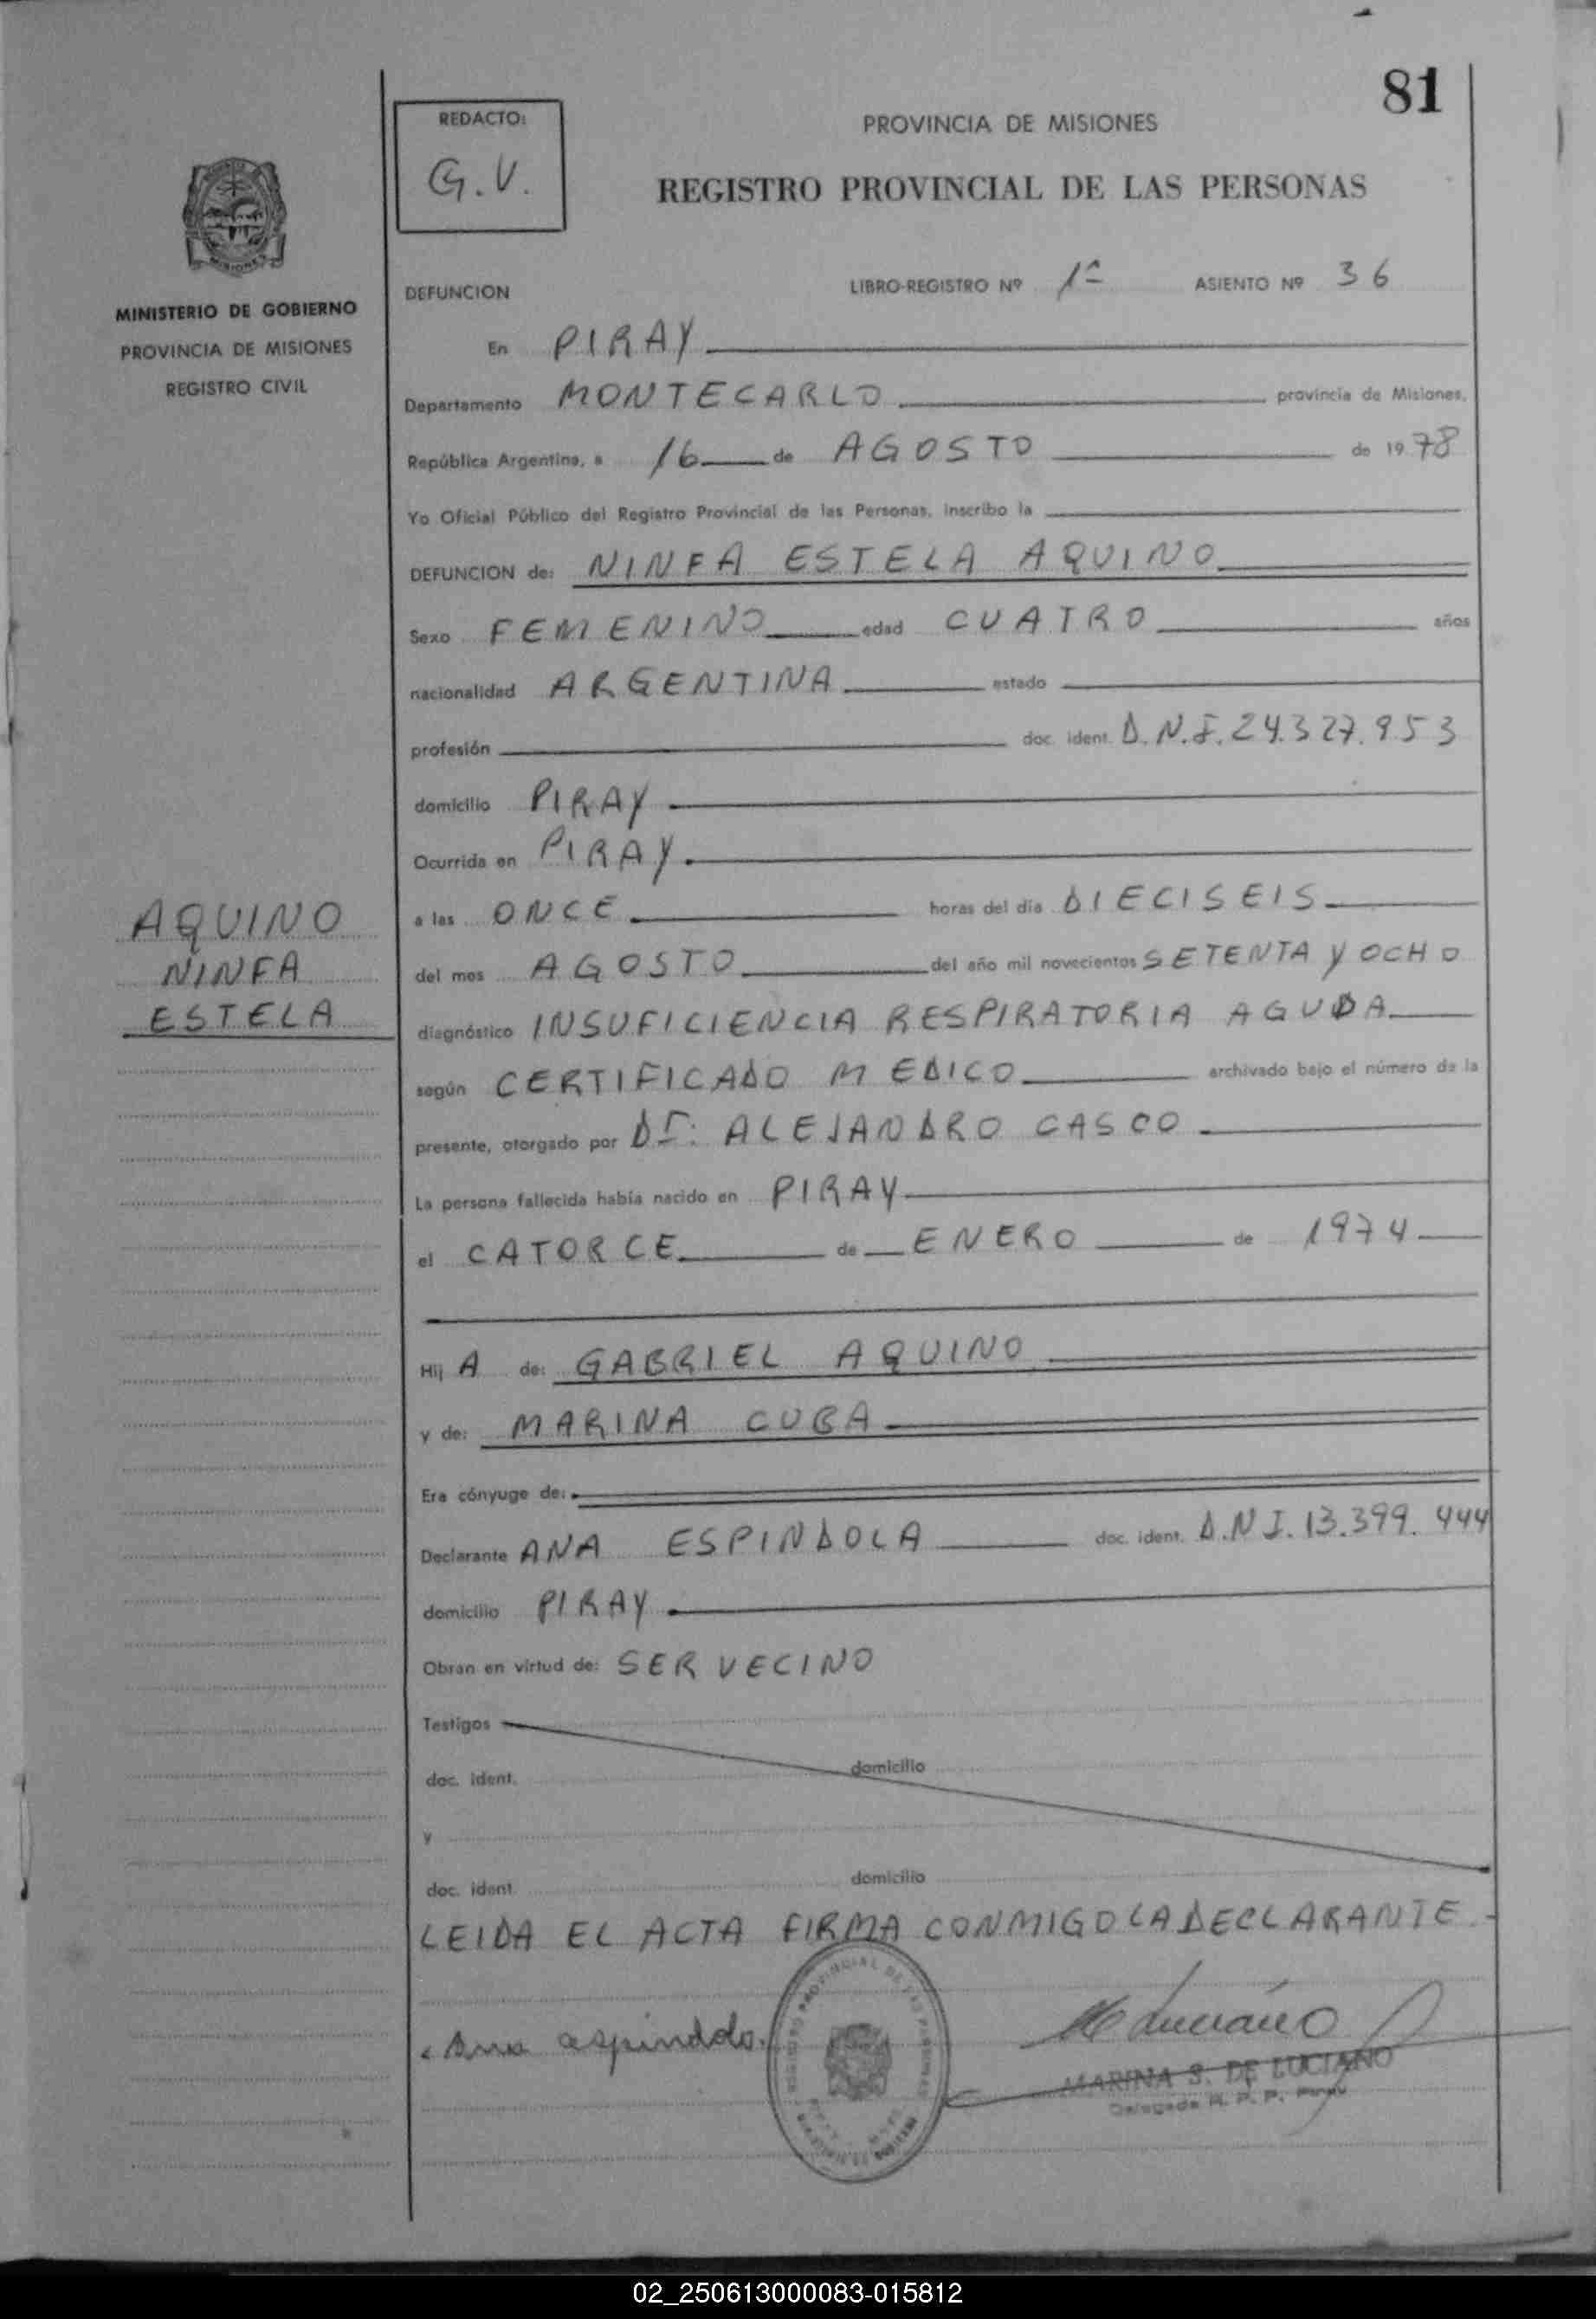 81
REDACTO:
G.V.
PROVINCIA DE MISIONES
REGISTRO PROVINCIAL DE LAS PERSONAS
MISIONES
MINISTERIO DE GOBIERNO
PROVINCIA DE MISIONES
REGISTRO CIVIL
DEFUNCION LIBRO-REGISTRO Nº 1º ASIENTO Nº 36
En PIRAY
Departamento MONTECARLO provincia de Misiones,
República Argentina, a 16 de AGOSTO de 1978
Yo Oficial Público del Registro Provincial de las Personas, inscribo la
DEFUNCION de: NINFA ESTELA AQUINO
Sexo FEMENINO edad CUATRO años
nacionalidad ARGENTINA estado
profesión doc. ident. D.N.I. 24.327.953
domicilio PIRAY
Ocurrida en PIRAY
AQUINO
NINFA
ESTELA
a las ONCE horas del día DIECISEIS
del mes AGOSTO del año mil novecientos SETENTA Y OCHO
diagnóstico INSUFICIENCIA RESPIRATORIA AGUDA
según CERTIFICADO MEDICO archivado bajo el número de la
presente, otorgado por Dr: ALEJANDRO CASCO
La persona fallecida había nacido en PIRAY
el CATORCE de ENERO de 1974
Hij A de: GABRIEL AQUINO
y de: MARINA CUBA
Era cónyuge de:
Declarante ANA ESPINDOLA doc. ident. D.N.I. 13.399.444
domicilio PIRAY
Obran en virtud de: SER VECINO
Testigos
doc. ident. domicilio
y
doc. ident. domicilio
LEIDA EL ACTA FIRMA CONMIGO LA DECLARANTE
Ana espindola.
MARINA S. DE LUCIANO
Delegada R. P. P. Piray
02_250613000083-015812